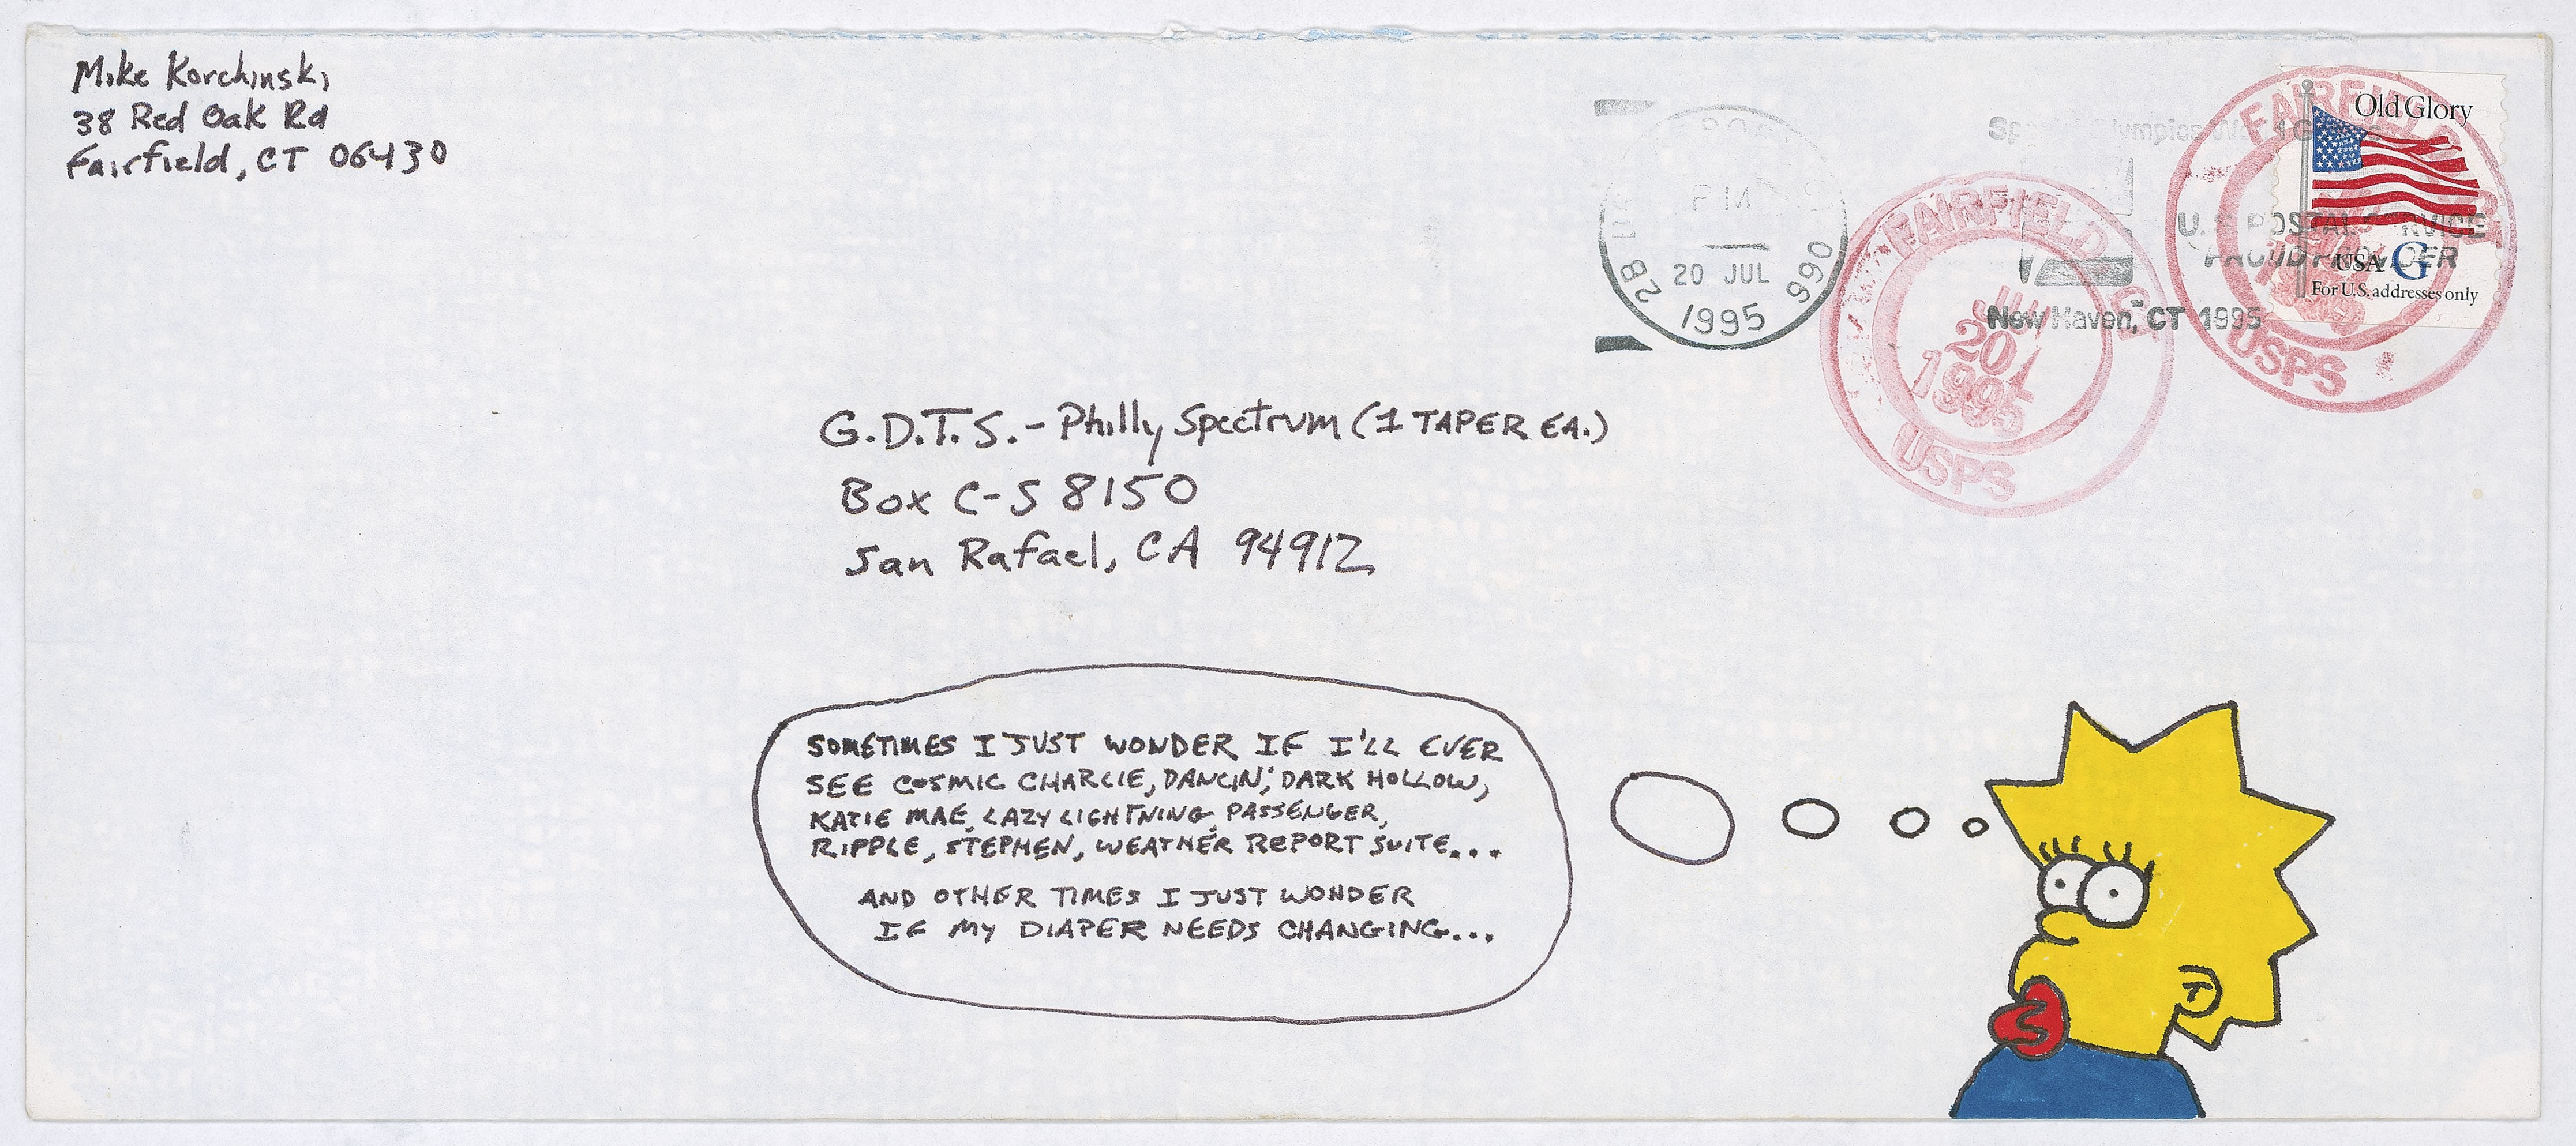 Mike Korchinski
38 Red Oak Rd
Fairfield, CT 06430
POST
PM
20 JUL
1995
Special Olympics World G
U.S. POSTAL SERVICE
PROUD PROVIDER
New Haven, CT 1995
FAIRFIELD
JUL
20
1995
USPS
FAIRFIELD
USPS
Old Glory
USA G
For U.S. addresses only
G.D.T.S. - Philly Spectrum (1 TAPER EA.)
Box C-S 8150
San Rafael, CA 94912
SOMETIMES I JUST WONDER IF I'LL EVER
SEE COSMIC CHARLIE, DANCIN', DARK HOLLOW,
KATIE MAE, LAZY LIGHTNING, PASSENGER,
RIPPLE, STEPHEN, WEATHER REPORT SUITE...
AND OTHER TIMES I JUST WONDER
IF MY DIAPER NEEDS CHANGING...